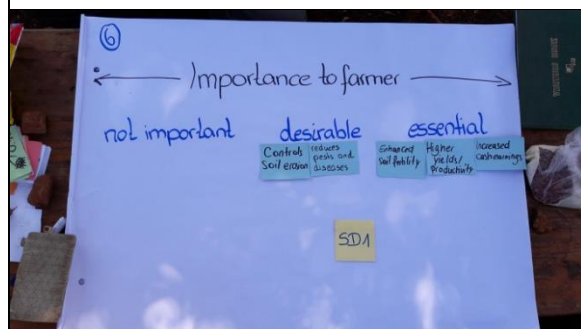 6
Importance to farmer
not important desirable essential
Controls
Soil erosion
reduces
pests and
diseases
Enhanced
Soil fertility
Higher
yields/
productivity
Increased
Cash earnings
SD1
VISITORS BOOK